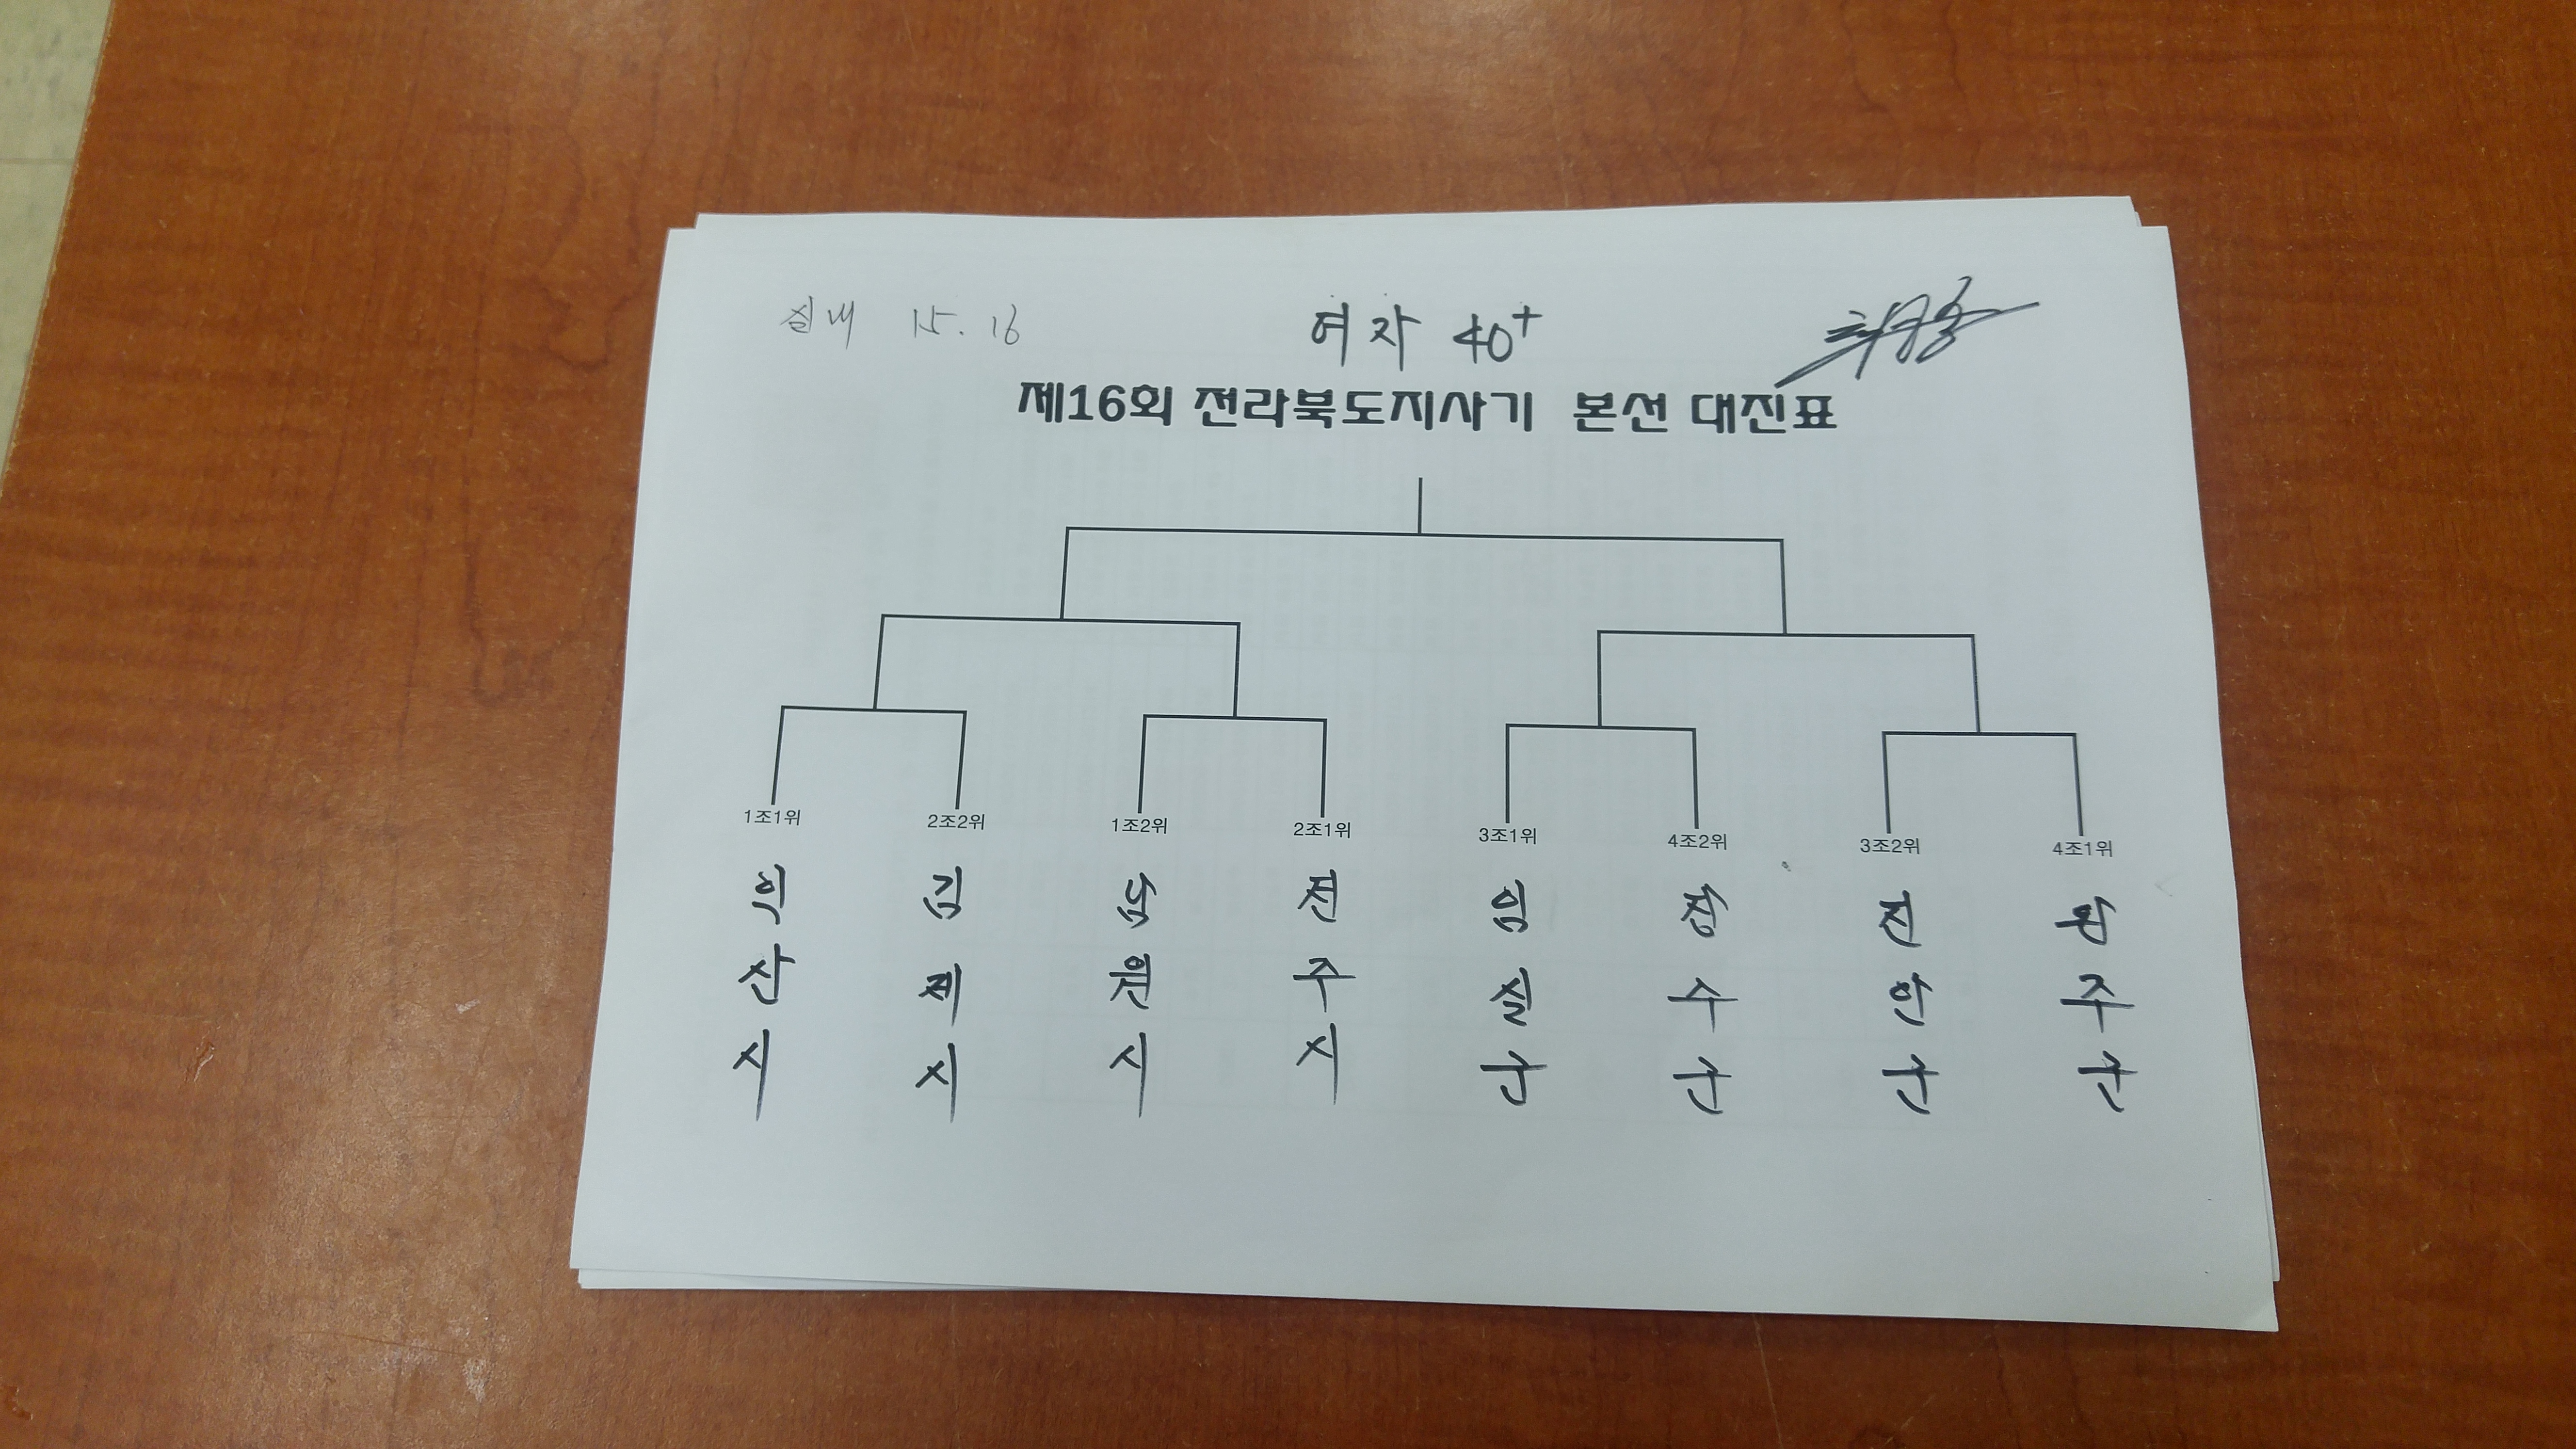 실내 15. 16
여자 40+
제16회 전라북도지사기 본선 대진표
1조1위 2조2위 1조2위 2조1위 3조1위 4조2위 3조2위 4조1위
익산시 김제시 남원시 전주시 임실군 장수군 진안군 완주군